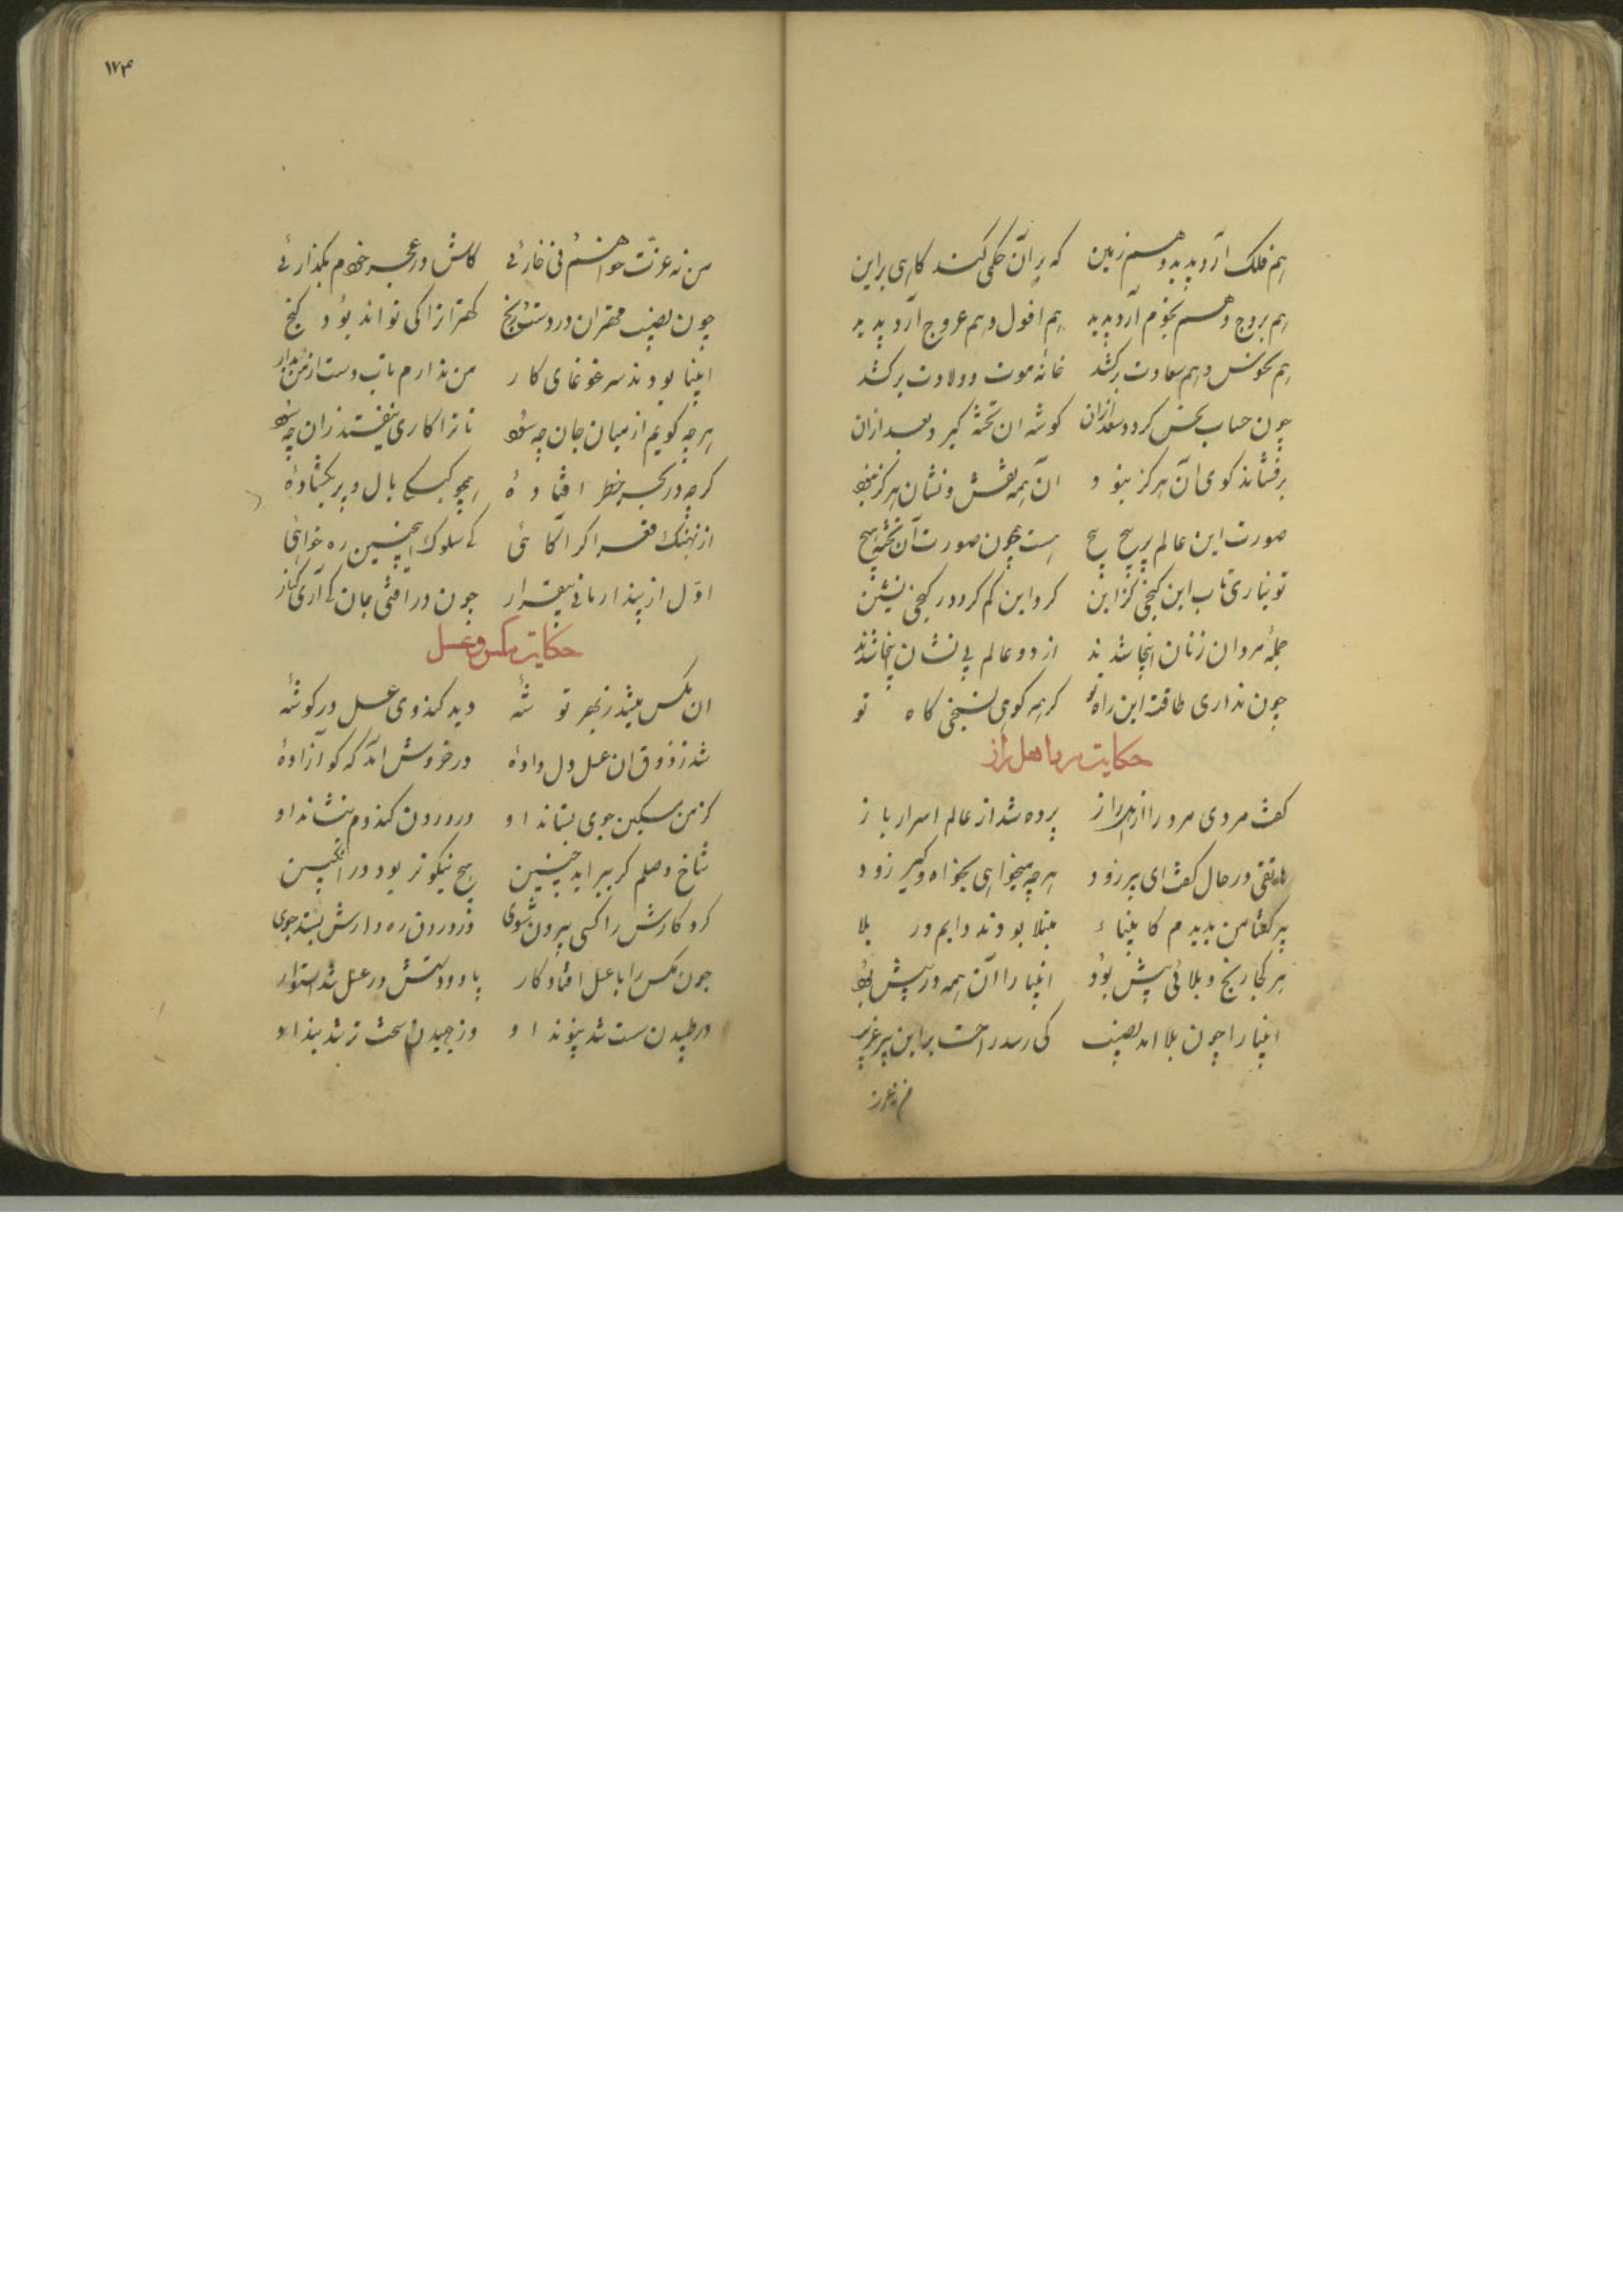 هم فلک آرد پدید و هم زمین که بر آن حکمی کند کاهی براین
هم بروج و هم نجوم آرد پدید هم افول و هم عروج آرد پدید
هم نحوس و هم سعادت برکشد خانه موت و ولادت برکشد
چون حساب نحس کرد و سعد ازان کوشه ان تخته کیرد بعد ازان
برفشاند کوی آن هرکز نبود آن همه نقش و نشان هرکز نبود
صورت این عالم پر پیچ پیچ هست همچون صورت آن تخته هیچ
تو نیاری تاب این کنجی کزین کرد این کم کرد در کنجی نشین
جملهٔ مردان زنان اینجا شدند از دو عالم بی نشان اینجا شدند
چون نداری طاقت این راه تو کر همه کوهی نسنجی کاه تو
حکایت مرد اهل راز
کفت مردی مرد را از اهل راز پرده شد از عالم اسرار باز
هاتفی در حال کفت ای پیر زود هرچه میخواهی بخواه و کیر زود
پیر کفتا من بدیدم کانبیاء مبتلا بودند دایم در بلا
هر کجا رنج و بلائی پیش بود انبیا را آن همه در پیش بود
انبیا را چون بلا امد نصیب کی رسد راحت براین پیر غریب
من نه عزت
١٧٤
من نه عزت خواهم نی خارئی کاش در عجز خودم بکذارئی
چون نصیب مهتران دردست و رنج کهتران را کی تواند بود کنج
انبیا بودند سر غوغای کار من ندارم تاب دست از من بدار
هرچه کویم از میان جان چه سود تا ترا کاری نیفتد زان چه سود
کرچه در بحر خطر افتادهٔ همچو کبکی بال و پر بکشادهٔ
از نهنک و قعر اکر آکاهئی کی سلوک اینچنین ره خواهئی
اول از پندار مانی بیقرار چون درافتی جان کی آری کنار
حکایت مکس و عسل
ان مکس میشد ز بهر توشهٔ دید کندوی عسل در کوشهٔ
شد ز ذوق ان عسل دل دادهٔ در خروش آمد که کو آزادهٔ
کز من مسکین جوی بستاند او در درون کندوم بنشاند او
شاخ وصلم کر ببر اید چنین هیچ نیکوتر بود در انکبین
کرد کارش را کسی بیرون شوی در درون ره دادش بستد جوی
چون مکس را با عسل افتاد کار پا و دستش در عسل شد استوار
در طپیدن سست شد پیوند او وز جهیدن سخت تر شد بند او